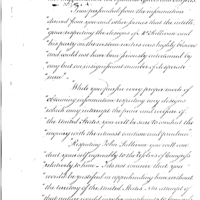 I am persuaded from the information
derived from you and other sources that the intelli-
gence respecting the designs of Mr Sullivan and
his party on the western waters was highly
and could not have been seriously entertained by
any but an insignificant number of desperate
men
While you pursue every proper mode of
obtaining information respecting any designs
which may interrupt the peace and welfare of
the United States, you will be sure to conduct the
inquiry with the utmost caution and prudence
Respecting John Sullivan you will con-
duct yourself agreeably to the Resolves of Congress
relatively to him. I do not conceive that you
would be justified in apprehending him without
the territory of the United States. An attempt of
that nature would